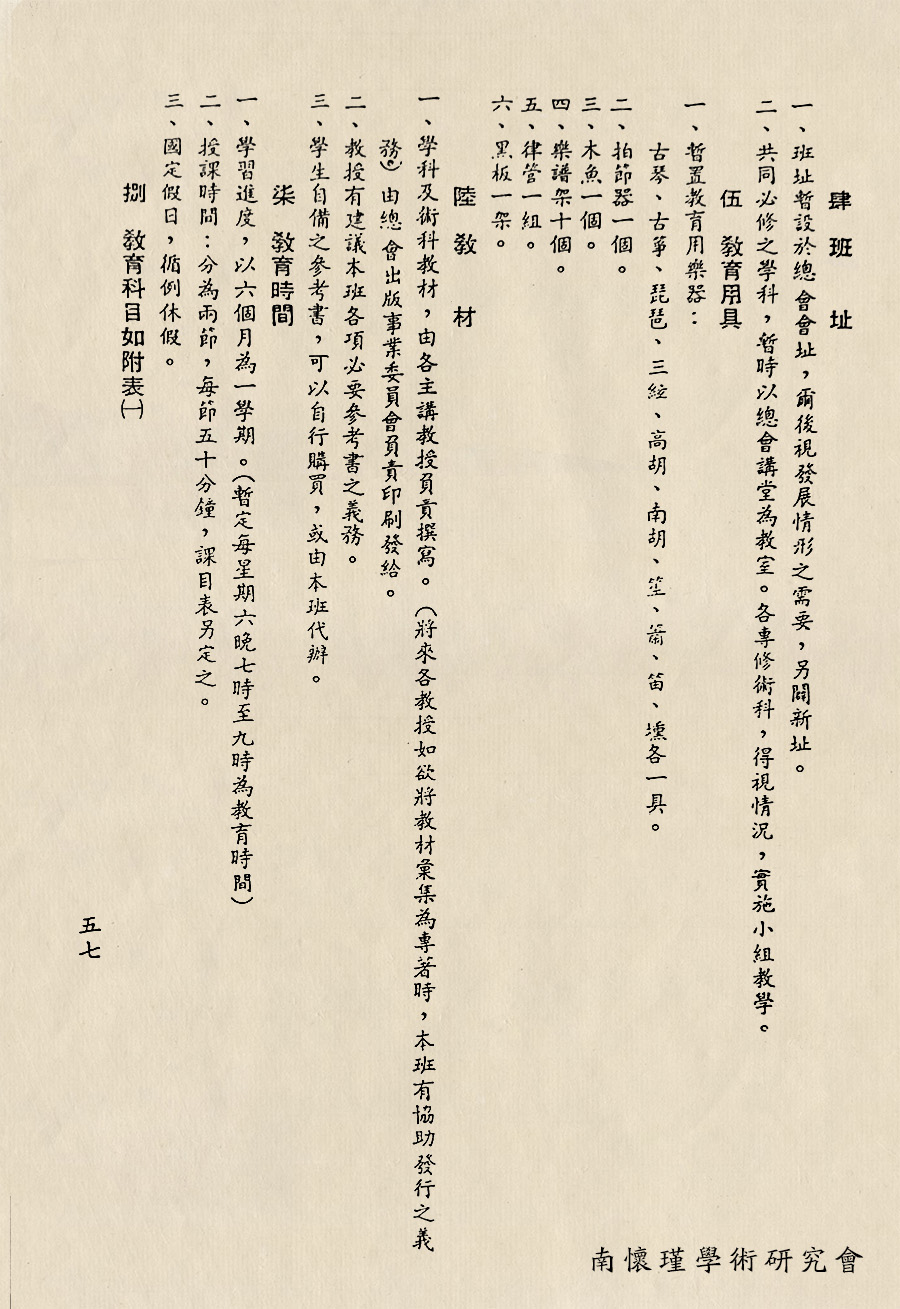 肆 班 址
一、班址暫設於總會會址，爾後視發展情形之需要，另闢新址。
二、共同必修之學科，暫時以總會講堂為教室。各專修術科，得視情況，實施小組教學。
伍 教育用具
一、暫置教育用樂器：
古琴、古箏、琵琶、三絃、高胡、南胡、笙、簫、笛、壎各一具。
二、拍節器一個。
三、木魚一個。
四、樂譜架十個。
五、律管一組。
六、黑板一架。
陸 教 材
一、學科及術科教材，由各主講教授負責撰寫。（將來各教授如欲將教材彙集為專著時，本班有協助發行之義
務）由總會出版事業委員會負責印刷發給。
二、教授有建議本班各項必要參考書之義務。
三、學生自備之參考書，可以自行購買，或由本班代辦。
柒 教育時間
一、學習進度，以六個月為一學期。（暫定每星期六晚七時至九時為教育時間）
二、授課時間：分為兩節，每節五十分鐘，課目表另定之。
三、國定假日，循例休假。
捌 教育科目如附表㈠
五七
南懷瑾學術研究會